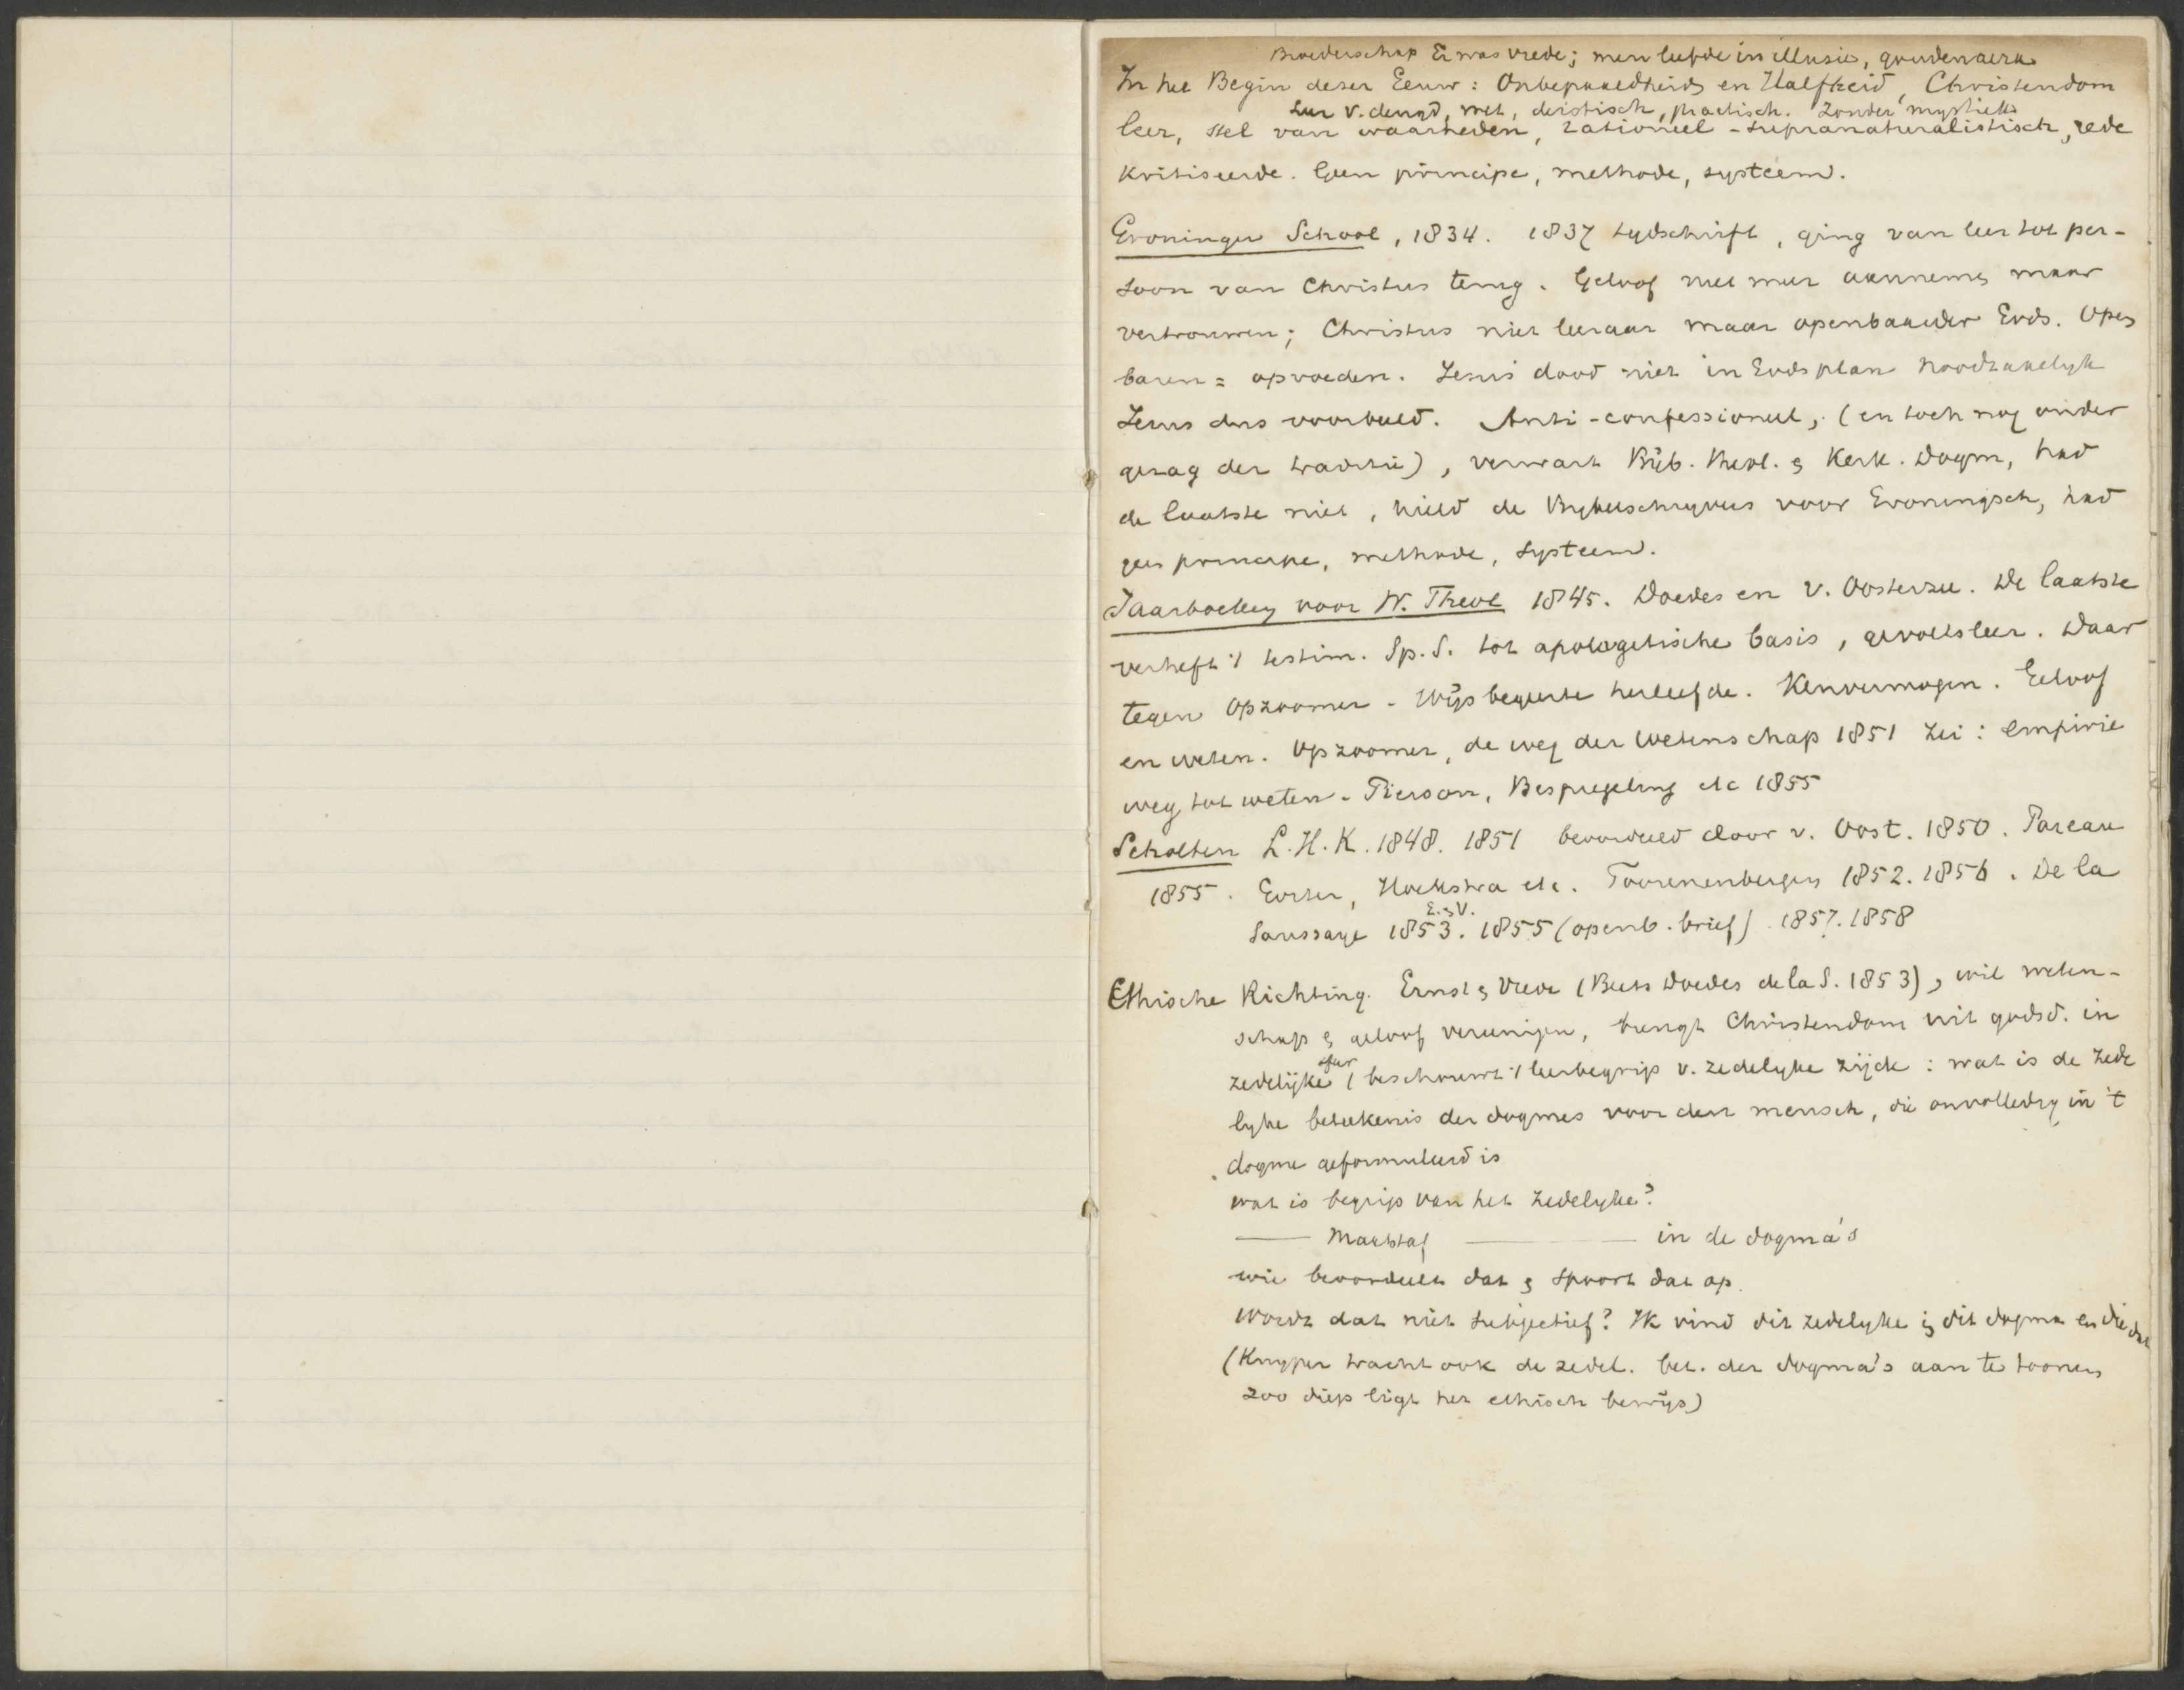 Broederschap Er was vrede; men leefde in illusie, gouden aera
In het Begin dezer Eeuw: Onbepaaldheid en Halfheid, Christendom
leer v. deugd, wet, deistisch, practisch. Zonder mystiek
leer, stel van waarheden, rationeel-supranaturalistisch, rede
kritiseerde. Geen principe, methode, systeem.
Groninger School, 1834. 1837 tydschrift, ging van leer tot per-
soon van Christus terug. Geloof niet meer aannemen maar
vertrouwen; Christus niet leeraar maar openbaarder Gods. Open
baren = opvoeden. Jezus dood niet in Gods plan noodzakelyk
Jezus dus voorbeeld. Anti-confessioneel, (en toch nog onder
gezag der traditie), verwart Bijb. Theol. & Kerk. Dogm, had
de laatste niet, hield de Bybelschryvers voor Groningsch, had
geen principe, methode, systeem.
Jaarboeken voor W. Theol 1845. Doedes en v. Oosterzee. De laatste
verheft 't testim. Sp. S. tot apologetische basis, gevoelsleer. Daar
tegen Opzoomer - Wijsbegeerte herleefde. Kenvermogen. Geloof
en weten. Opzoomer, de weg der Wetenschap 1851 zei: empirie
weg tot weten. Pierson, Bespiegeling etc 1855
Scholten L.H.K. 1848. 1851 beoordeeld door v. Oost. 1850. Pareau
1855. Gorter, Hoekstra etc. Toorenenbergen 1852. 1856. De la
E. & V.
Saussaye 1853. 1855 (openb. brief). 1857. 1858
Ethische Richting. Ernst & Vrede (Beets Doedes de la S. 1853), wil weten-
schap & geloof vereenigen, brengt Christendom uit godsd. in
sfeer
zedelijke ( beschouwt 't leerbegrip v. zedelyke zijde: wat is de zede
lyke beteekenis der dogmes voor den mensch, die onvolledig in 't
dogme geformuleerd is
wat is begrip van het zedelyke?
—— Maatstaf —————— in de dogma's
wie beoordeelt dat & spoort dat op.
Wordt dat niet subjectief? Ik vind dit zedelyke in dit dogma en die dat
(Kuyper tracht ook de zedel. bet. der dogma's aan te toonen
zoo diep ligt het ethisch bewijs)